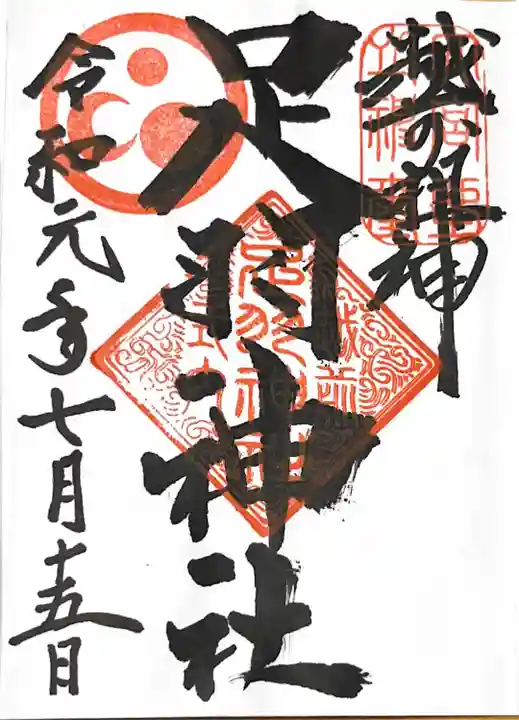 越の祖神
足羽神社
令和元年七月十五日
越前
足羽神社
式内